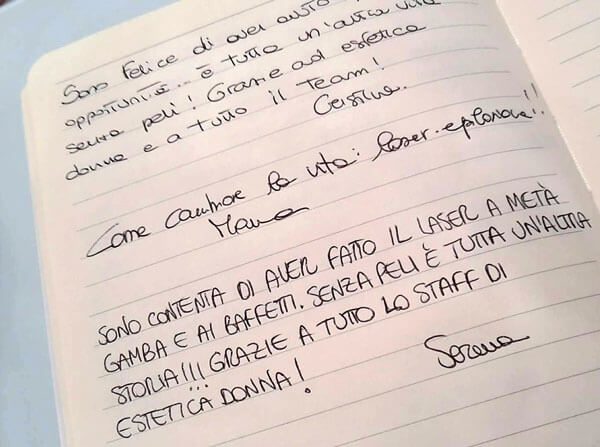 Sono felice di aver avuto
opportunità... è tutta un'altra vita
senza peli! Grazie ad estetica
donna e a tutto il team!
Cristina.
Come cambiare la vita: laser-epilazione!!
SONO CONTENTA DI AVER FATTO IL LASER A METÀ
GAMBA E AI BAFFETTI. SENZA PELI È TUTTA UN'ALTRA
STORIA!!! GRAZIE A TUTTO LO STAFF DI
ESTETICA DONNA!
Serena